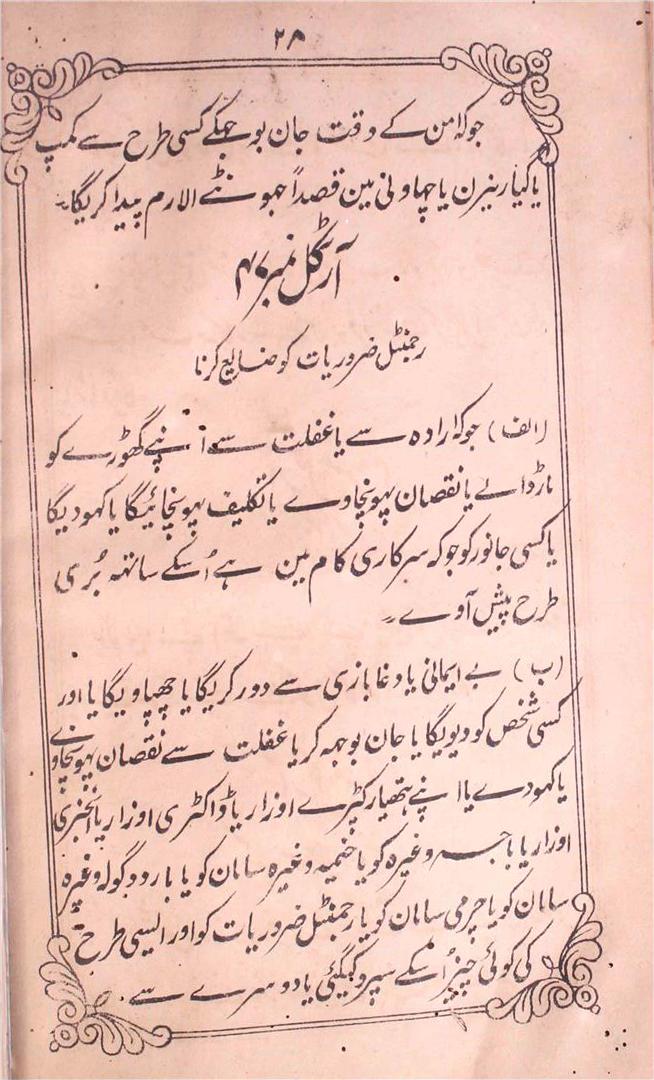 ۲۸
جو کہ امن کے وقت جان بوجہکے کسی طرح سے کمپ
یا گیاریزن یا چہاونی مین قصداً جہوٹے الارم پیدا کریگا۔
آرٹکل نمبر ۴۷
رجمنٹل ضروریات کو ضایع کرنا
(الف) جو کہ ارادہ سے یا غفلت سے اپنے گھوڑے کو
مارڈالے یا نقصان پہونچاوے یا تکلیف پہونچائیگا یا کہودیگا
یا کسی جانور کو جو کہ سرکاری کام مین ہے اُسکے ساتہہ بُری
طرح پیش آوے۔
(ب) بے ایمانی یا دغابازی سے دور کریگا یا چھپاویگا یا اور
کسی شخص کو دیویگا یا جان بوجہہ کر یا غفلت سے نقصان پہونچاوے
یا کہودے یا اپنے ہتھیار کپڑے اوزار یا ڈاکٹری اوزار یا انجنیری
اوزار یا باجہ وغیرہ کو یا خیمہ وغیرہ سامان کو یا بارود گولہ وغیرہ
سامان کو یا چرمی سامان کو یا رجمنٹل ضروریات کو اور ایسی طرح
کی کوئی چیز اُسکے سپرد کیگئی یا دوسرے سے